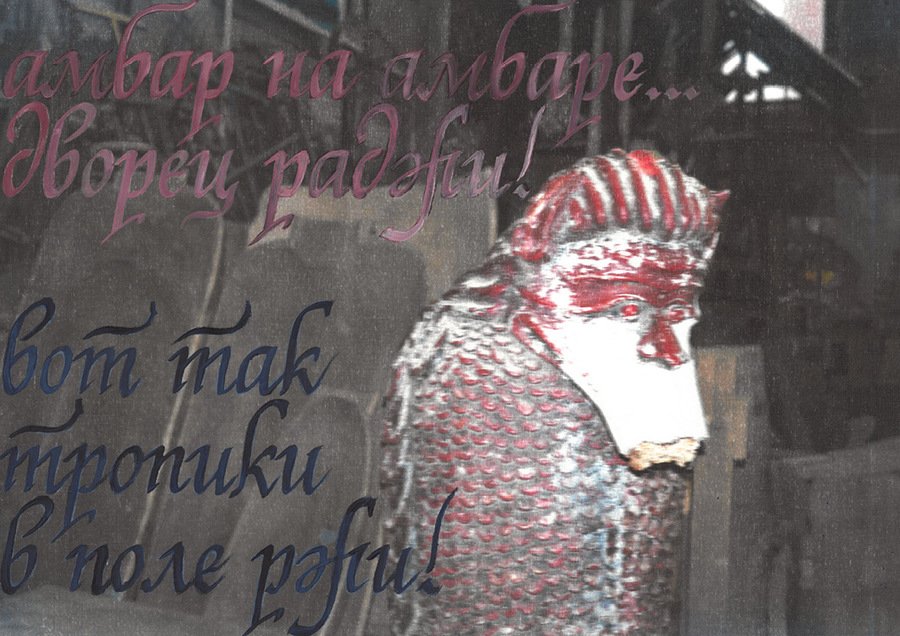 амбар на амбаре...
дворец раджи!
вот так
тропики
в поле ржи!